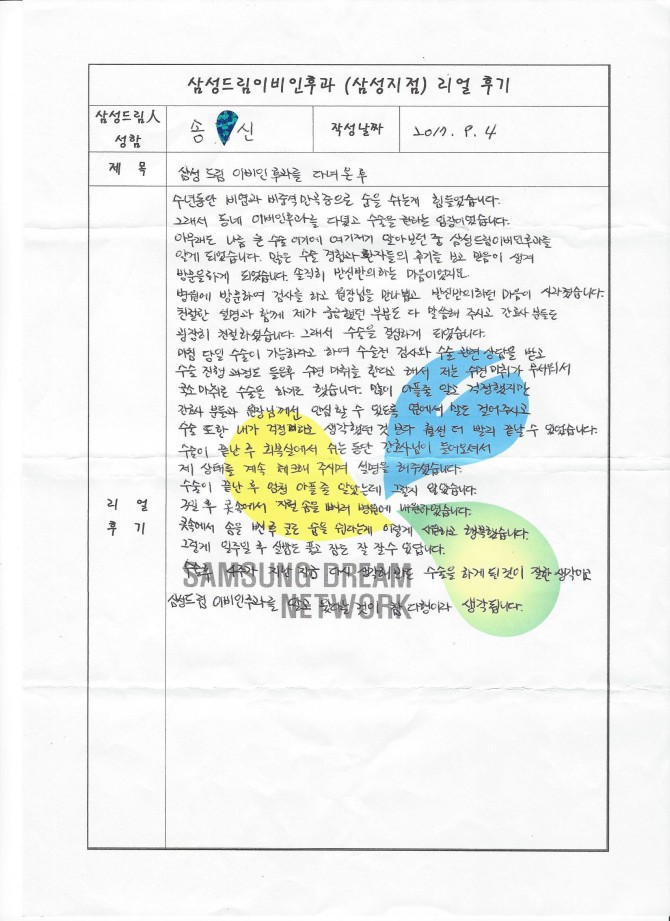 삼성드림이비인후과 (삼성지점) 리얼 후기
삼성드림人
성함
송 신
작성날짜
2017. 9. 4
제 목
삼성 드림 이비인후과를 다녀온 후
리 얼
후 기
수년동안 비염과 비중격만곡증으로 숨을 쉬는게 힘들었습니다.
그래서 동네 이비인후과를 다녔고 수술을 권하는 입장이었습니다.
아무래도 나름 큰 수술 여기에 여기저기 알아보던 중 삼성드림이비인후과를
알게 되었습니다. 많은 수술 경험과 환자들의 후기를 보고 믿음이 생겨
방문을하게 되었습니다. 솔직히 반신반의하는 마음이었지요.
병원에 방문하여 검사를 하고 원장님을 만나뵙고 반신반의하던 마음이 사라졌습니다.
친절한 설명과 함께 제가 궁금했던 부분도 다 말씀해 주시고 간호사 분들도
굉장히 친절하셨습니다. 그래서 수술을 결심하게 되었습니다.
마침 당일 수술이 가능하다고 하여 수술전 검사와 수술 관련 상담을 받고
수술 진행 과정도 들은후 수면 마취를 한다고 해서 저는 수면마취가 무서워서
국소마취로 수술은 하기로 했습니다. 많이 아플줄 알고 걱정했지만
간호사 분들과 원장님께선 안심할 수 있도록 옆에서 말도 걸어주시고
수술 또한 내가 걱정 생각했던 것 보다 훨씬 더 빨리 끝날 수 있었습니다.
수술이 끝난 후 회복실에서 쉬는 동안 간호사님이 들어오셔서
제 상태를 계속 체크해 주시며 설명을 해주셨습니다.
수술이 끝난 후 엄청 아플 줄 알았는데 그렇지 않았습니다.
2일 후 콧속에서 지혈 솜을 빼러 병원에 내원하였습니다.
콧속에서 솜을 뺀후 코로 숨을 쉰다는게 이렇게 시원하고 행복했습니다.
그렇게 일주일 후 실밥도 풀고 잠도 잘 잘수 있답니다.
수술후 4주가 지난 지금 다시 생각해 봐도 수술을 하게 된 것이 잘한 생각이고
삼성드림 이비인후과를 알고 것이 참 다행이라 생각됩니다.
SAMSUNG DREAM
NETWORK